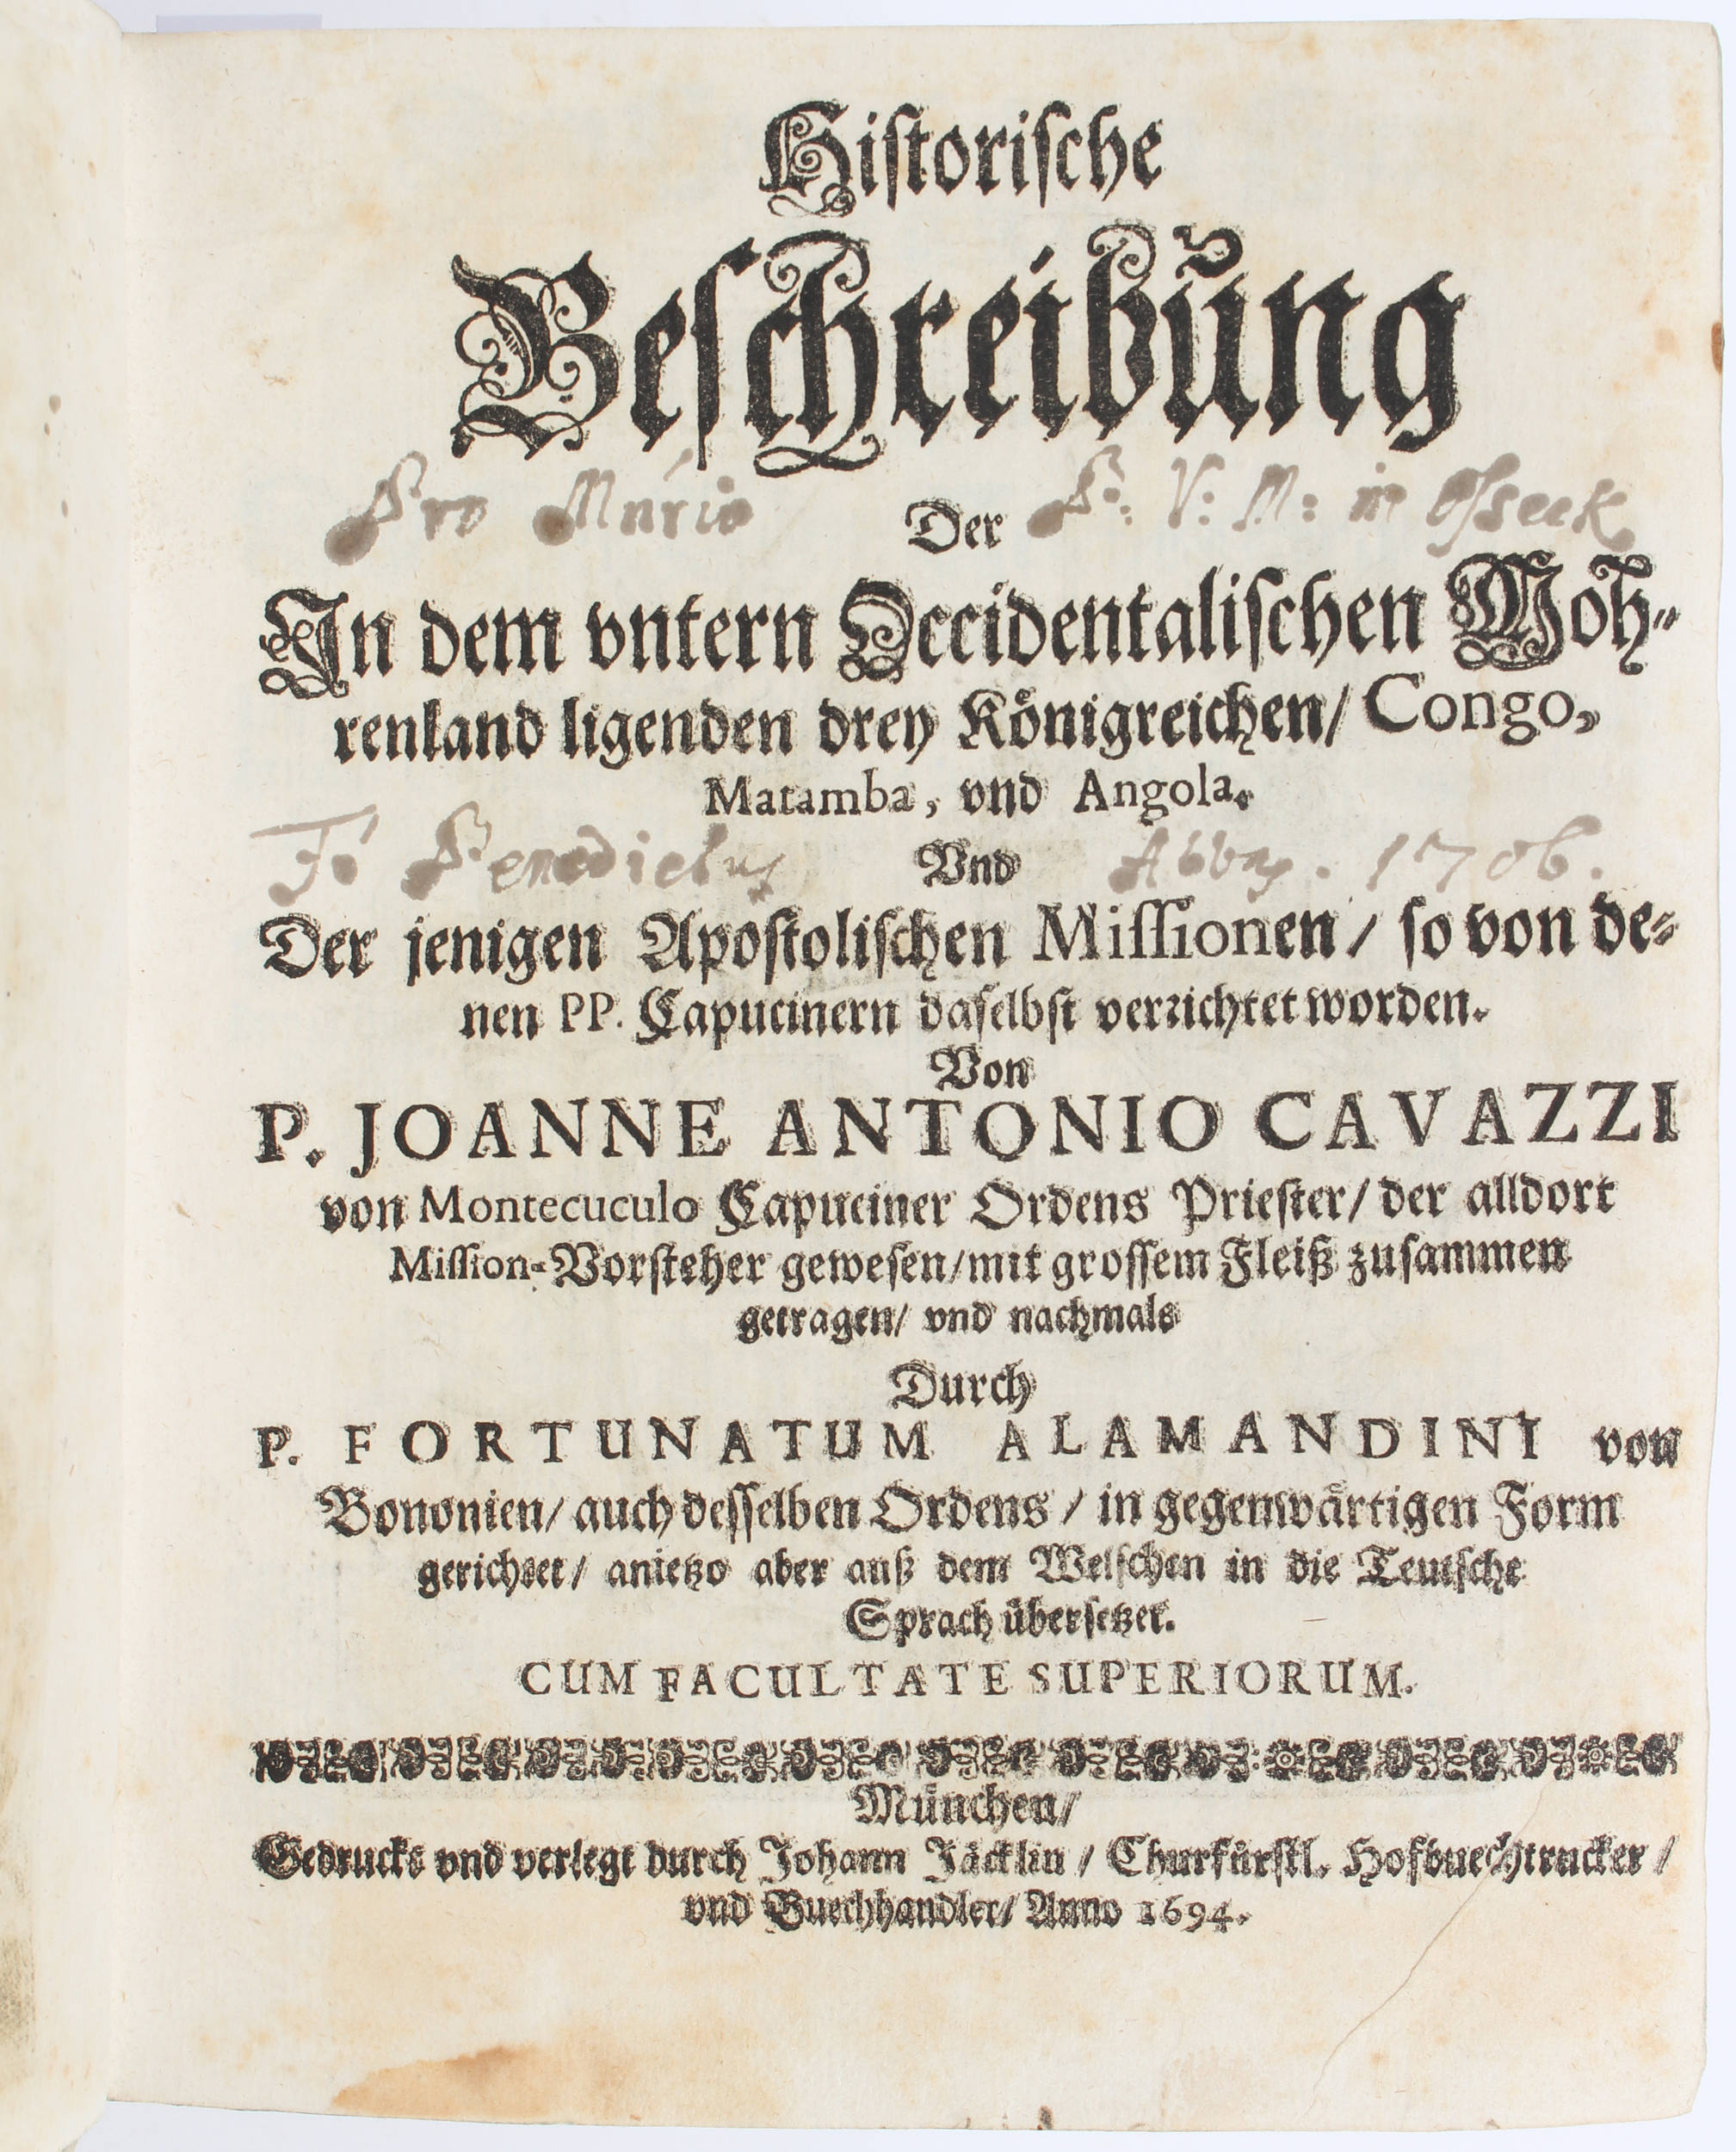 Historische
Beschreibung
Pro Mario Der B: V: M: in Osseck
In dem vntern Occidentalischen Moh-
renland ligenden drey Königreichen/ Congo,
Matamba, vnd Angola.
F. Benedictus Vnd Abbas. 1706.
Der jenigen Apostolischen Missionen / so von de-
nen PP. Capucinern daselbst verrichtet worden.
Von
P. JOANNE ANTONIO CAVAZZI
von Montecuculo Capuciner Ordens Priester/ der alldort
Mission-Vorsteher gewesen/mit grossem Fleiß zusammen
getragen/ vnd nachmals
Durch
P. FORTUNATUM ALAMANDINI von
Bononien/ auch desselben Ordens / in gegenwärtigen Form
gerichtet/ anietzo aber auß dem Welschen in die Teutsche
Sprach übersetzet.
CUM FACULTATE SUPERIORUM.
München/
Gedruckt vnd verlegt durch Johann Jäcklin / Churfürstl. Hofbuechtrucker /
vnd Buechhandler/ Anno 1694.